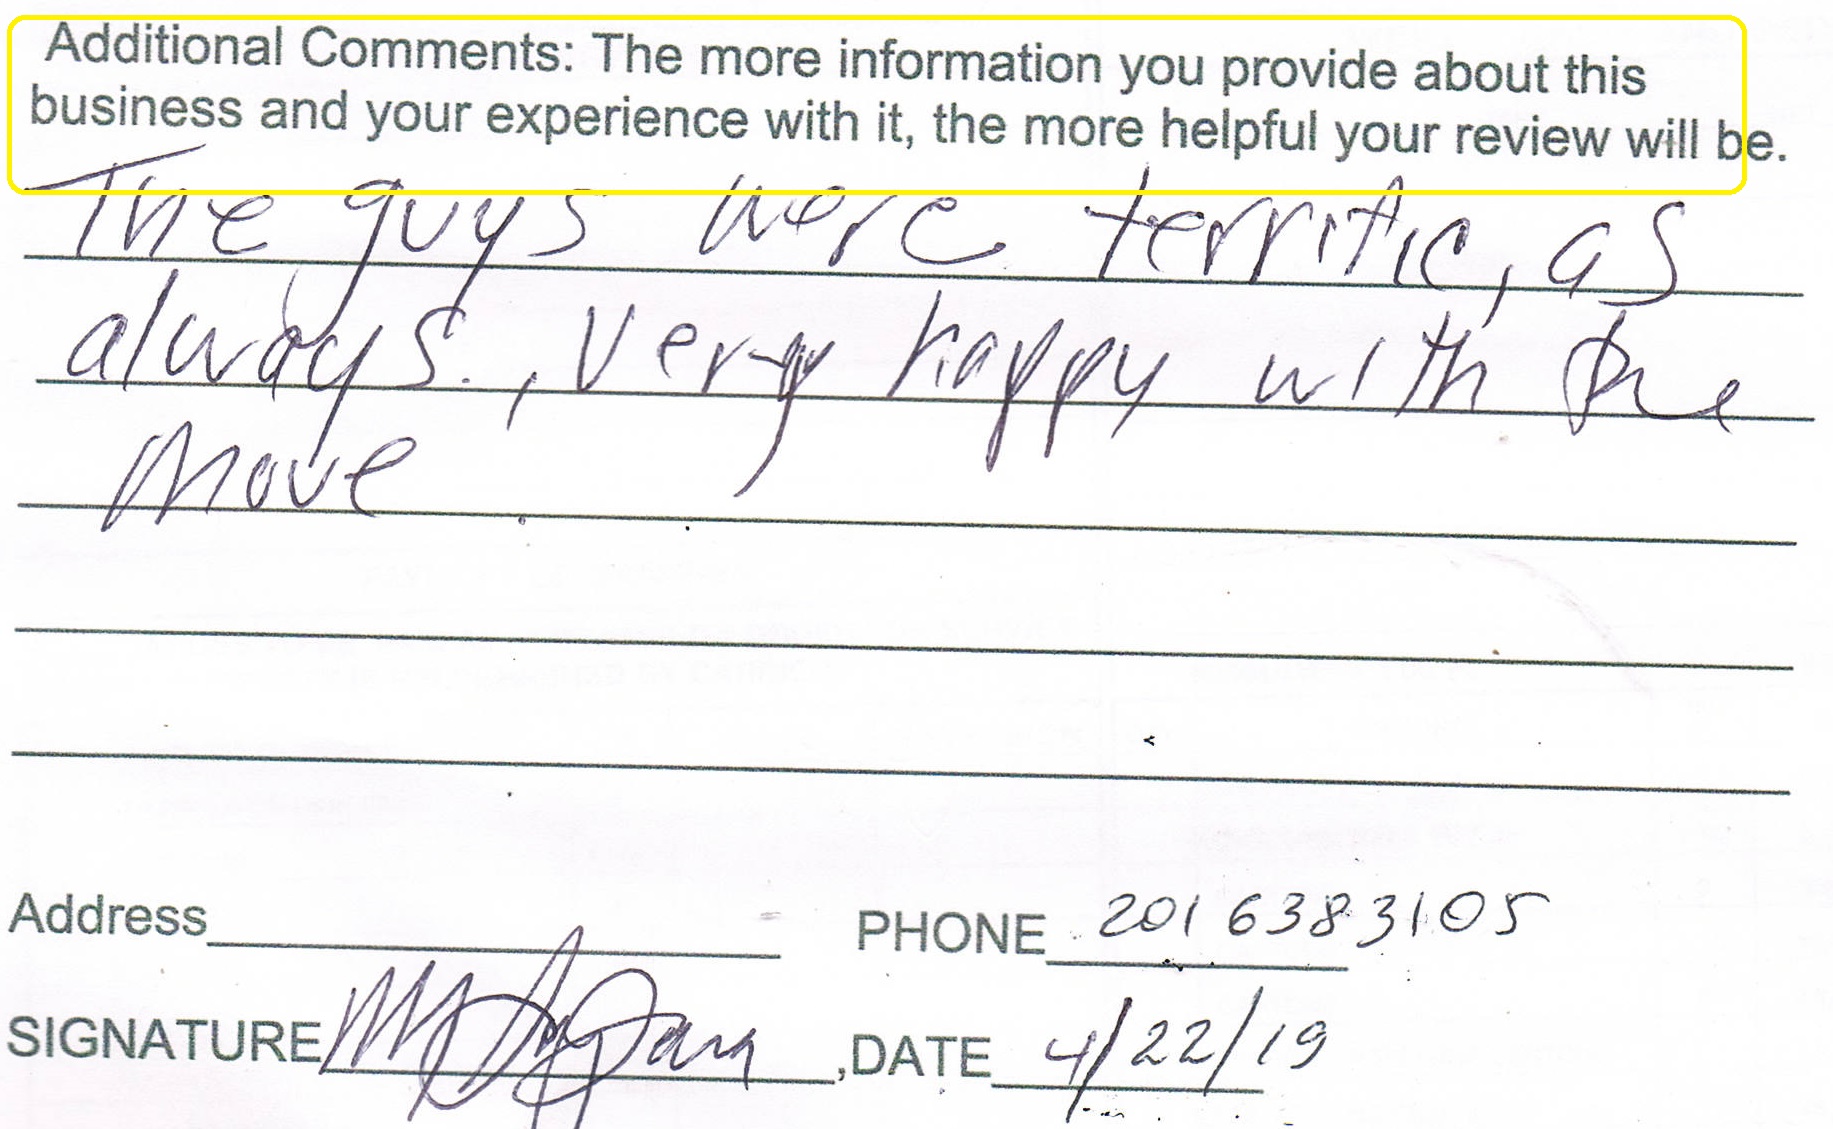 Additional Comments: The more information you provide about this
business and your experience with it, the more helpful your review will be.
The guys were terrific, as
always., Very happy with the
move
Address
PHONE 2016383105
SIGNATURE
,DATE 4/22/19